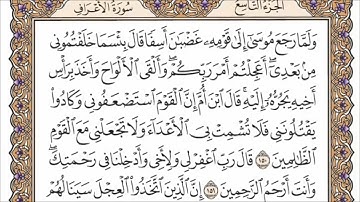 الجزء التاسع سورة الأعراف
وَلَمَّا رَجَعَ مُوسَىٰٓ إِلَىٰ قَوْمِهِۦ غَضْبَٰنَ أَسِفًا قَالَ بِئْسَمَا خَلَفْتُمُونِى
مِنۢ بَعْدِىٓ ۖ أَعَجِلْتُمْ أَمْرَ رَبِّكُمْ ۖ وَأَلْقَى ٱلْأَلْوَاحَ وَأَخَذَ بِرَأْسِ
أَخِيهِ يَجُرُّهُۥٓ إِلَيْهِ ۚ قَالَ ٱبْنَ أُمَّ إِنَّ ٱلْقَوْمَ ٱسْتَضْعَفُونِى وَكَادُوا۟
يَقْتُلُونَنِى فَلَا تُشْمِتْ بِىَ ٱلْأَعْدَآءَ وَلَا تَجْعَلْنِى مَعَ ٱلْقَوْمِ
ٱلظَّٰلِمِينَ ١٥٠ قَالَ رَبِّ ٱغْفِرْ لِى وَلِأَخِى وَأَدْخِلْنَا فِى رَحْمَتِكَ ۖ
وَأَنتَ أَرْحَمُ ٱلرَّٰحِمِينَ ١٥١ إِنَّ ٱلَّذِينَ ٱتَّخَذُوا۟ ٱلْعِجْلَ سَيَنَالُهُمْ